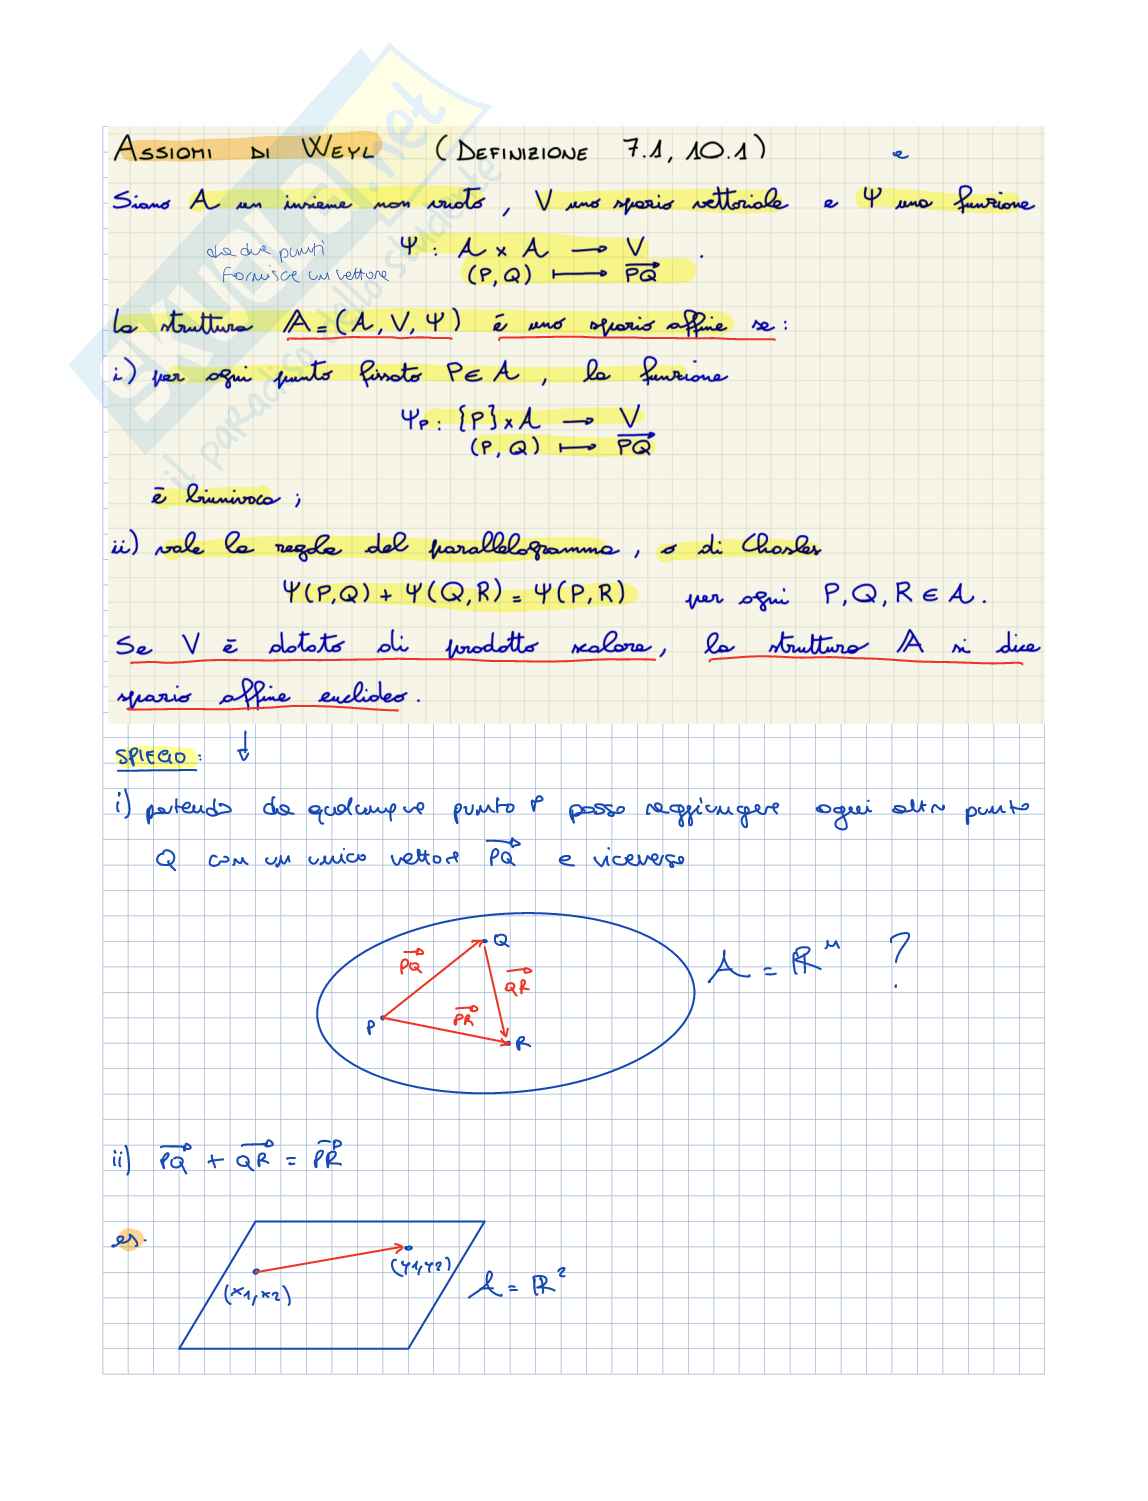 ASSIOMI DI WEYL (DEFINIZIONE 7.1, 10.1) e
Siano A un insieme non vuoto, V uno spazio vettoriale e Ψ una funzione
da due punti
Fornisce un vettore
Ψ : A × A → V .
(P, Q) ⟼ PQ→
la struttura 𝔸 = (A, V, Ψ) è uno spazio affine se:
i) per ogni punto fissato P ∈ A, la funzione
Ψp : {P} × A → V
(P, Q) ⟼ PQ→
è biunivoca ;
ii) vale la regola del parallelogramma, o di Chasles
Ψ(P,Q) + Ψ(Q,R) = Ψ(P,R) per ogni P, Q, R ∈ A.
Se V è dotato di prodotto scalare, la struttura 𝔸 si dice
spazio affine euclideo.
SPIEGO: ↓
i) partendo da qualunque punto P posso raggiungere ogni altro punto
Q con un unico vettore PQ→ e viceversa
Q
PQ→
QR→
PR→
P
R
A = ℝⁿ ?
ii) PQ→ + QR→ = PR→
es.
(x1,x2)
(y1,y2)
A = ℝ²
SKUOLA.net
il paradiso dello studente